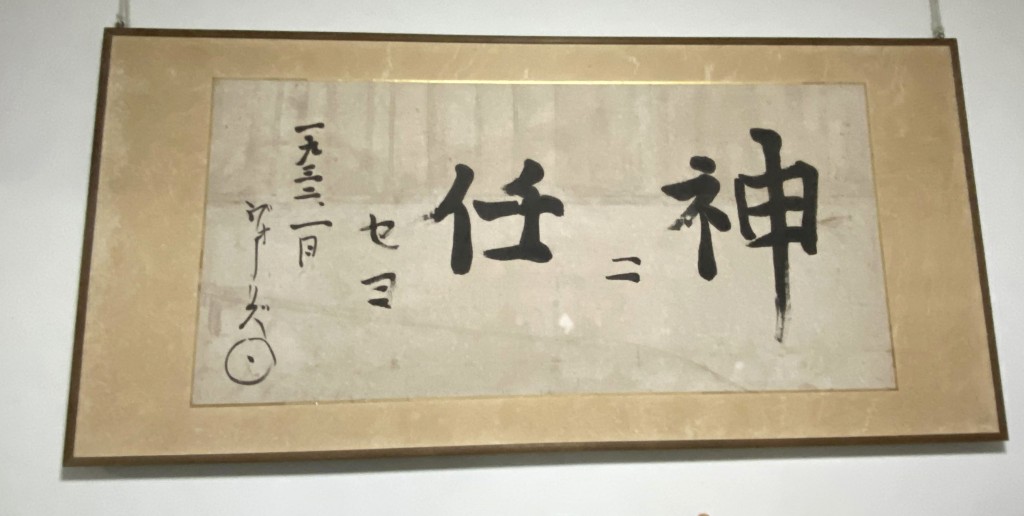 神ニ
任セヨ
一九三二、一月